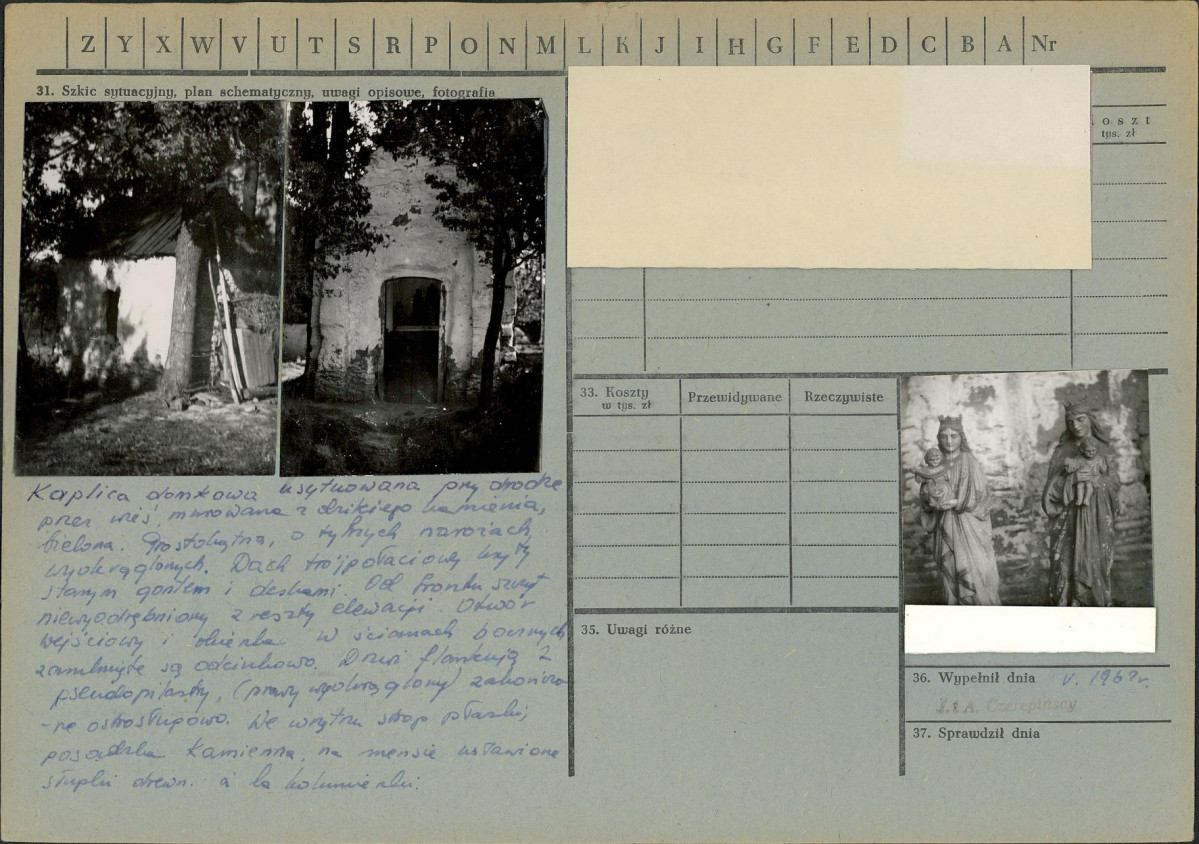 Z Y X W V U T S R P O N M L K J I H G F E D C B A Nr
31. Szkic sytuacyjny, plan schematyczny, uwagi opisowe, fotografia
oszt
tys. zł
Kaplica domkowa usytuowana przy drodze
przez wieś, murowana z dzikiego kamienia,
bielona. Prostokątna, o tylnych narożach
wyokrąglonych. Dach trójpołaciowy kryty
starym gontem i deskami. Od frontu szczyt
niewyodrębniony z reszty elewacji. Otwór
wejściowy i okienka w ścianach bocznych
zamknięte są odcinkowo. Drzwi flankują 2
pseudopilastry, (prawy wyokrąglony) zakończo-
-ne ostrosłupowo. We wnętrzu strop płaski,
posadzka kamienna, na mensie ustawione
słupki drewn. à la kolumienki.
33. Koszty
w tys. zł
Przewidywane
Rzeczywiste
35. Uwagi różne
36. Wypełnił dnia V. 1967r.
I. i A. Czerepińscy
37. Sprawdził dnia